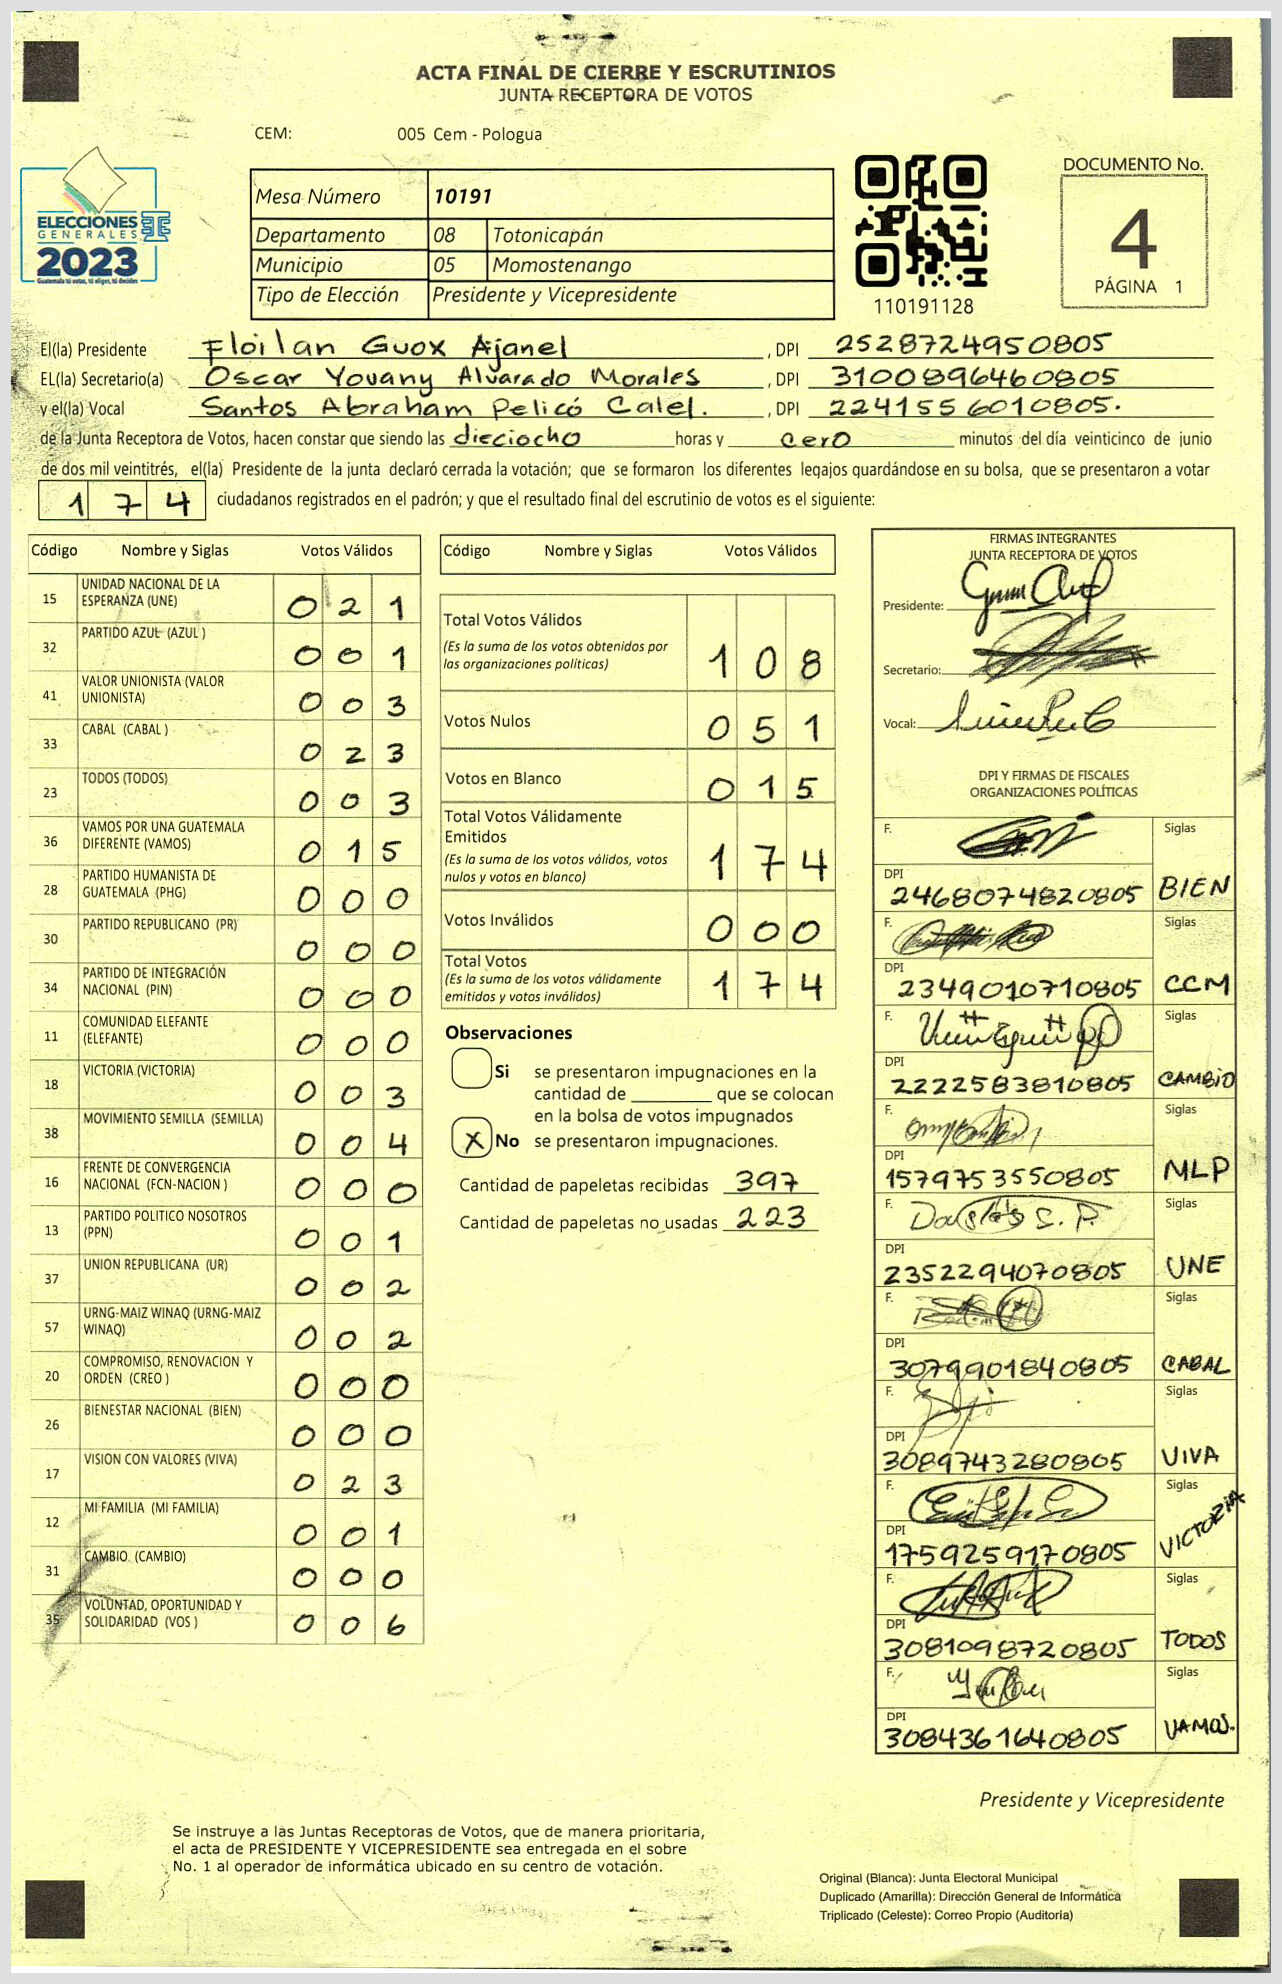 ACTA FINAL DE CIERRE Y ESCRUTINIOS
JUNTA RECEPTORA DE VOTOS
CEM: 005 Cem - Pologua
ELECCIONES
GENERALES
2023
Guatemala tú votas, tú eliges, tú decides
Mesa Número 10191
Departamento 08 Totonicapán
Municipio 05 Momostenango
Tipo de Elección Presidente y Vicepresidente
110191128
DOCUMENTO No.
4
PÁGINA 1
El(la) Presidente Floilan Guox Ajanel, DPI 2528724950805
EL(la) Secretario(a) Oscar Yovany Alvarado Morales, DPI 3100896460805
y el(la) Vocal Santos Abraham Pelicó Calel., DPI 2241556010805.
de la Junta Receptora de Votos, hacen constar que siendo las dieciocho horas y cero minutos del día veinticinco de junio
de dos mil veintitrés, el(la) Presidente de la junta declaró cerrada la votación; que se formaron los diferentes legajos quardándose en su bolsa, que se presentaron a votar
174 ciudadanos registrados en el padrón; y que el resultado final del escrutinio de votos es el siguiente:
Código Nombre y Siglas Votos Válidos
15 UNIDAD NACIONAL DE LA ESPERANZA (UNE) 021
32 PARTIDO AZUL (AZUL ) 001
41 VALOR UNIONISTA (VALOR UNIONISTA) 003
33 CABAL (CABAL ) 023
23 TODOS (TODOS) 003
36 VAMOS POR UNA GUATEMALA DIFERENTE (VAMOS) 015
28 PARTIDO HUMANISTA DE GUATEMALA (PHG) 000
30 PARTIDO REPUBLICANO (PR) 000
34 PARTIDO DE INTEGRACIÓN NACIONAL (PIN) 000
11 COMUNIDAD ELEFANTE (ELEFANTE) 000
18 VICTORIA (VICTORIA) 003
38 MOVIMIENTO SEMILLA (SEMILLA) 004
16 FRENTE DE CONVERGENCIA NACIONAL (FCN-NACION ) 000
13 PARTIDO POLITICO NOSOTROS (PPN) 001
37 UNION REPUBLICANA (UR) 002
57 URNG-MAIZ WINAQ (URNG-MAIZ WINAQ) 002
20 COMPROMISO, RENOVACION Y ORDEN (CREO ) 000
26 BIENESTAR NACIONAL (BIEN) 000
17 VISION CON VALORES (VIVA) 023
12 MI FAMILIA (MI FAMILIA) 001
31 CAMBIO (CAMBIO) 000
35 VOLUNTAD, OPORTUNIDAD Y SOLIDARIDAD (VOS ) 006
Código Nombre y Siglas Votos Válidos
Total Votos Válidos 108
(Es la suma de los votos obtenidos por
las organizaciones políticas)
Votos Nulos 051
Votos en Blanco 015
Total Votos Válidamente
Emitidos 174
(Es la suma de los votos válidos, votos
nulos y votos en blanco)
Votos Inválidos 000
Total Votos 174
(Es la suma de los votos válidamente
emitidos y votos inválidos)
Observaciones
Si se presentaron impugnaciones en la
cantidad de ________ que se colocan
en la bolsa de votos impugnados
X No se presentaron impugnaciones.
Cantidad de papeletas recibidas 397
Cantidad de papeletas no usadas 223
FIRMAS INTEGRANTES
JUNTA RECEPTORA DE VOTOS
Presidente:
Secretario:
Vocal:
DPI Y FIRMAS DE FISCALES
ORGANIZACIONES POLÍTICAS
F. Siglas
DPI 2468074820805 BIEN
F. Siglas
DPI 2349010710805 CCM
F. Siglas
DPI 2222583810805 CAMBIO
F. Siglas
DPI 1579753550805 MLP
F. Siglas
DPI 2352294070805 UNE
F. Siglas
DPI 3079901840805 CABAL
F. Siglas
DPI 3089743280805 VIVA
F. Siglas
DPI 1759259170805 VICTORIA
F. Siglas
DPI 3081098720805 TODOS
F. Siglas
DPI 3084361640805 VAMOS.
Presidente y Vicepresidente
Se instruye a las Juntas Receptoras de Votos, que de manera prioritaria,
el acta de PRESIDENTE Y VICEPRESIDENTE sea entregada en el sobre
No. 1 al operador de informática ubicado en su centro de votación.
Original (Blanca): Junta Electoral Municipal
Duplicado (Amarilla): Dirección General de Informática
Triplicado (Celeste): Correo Propio (Auditoría)